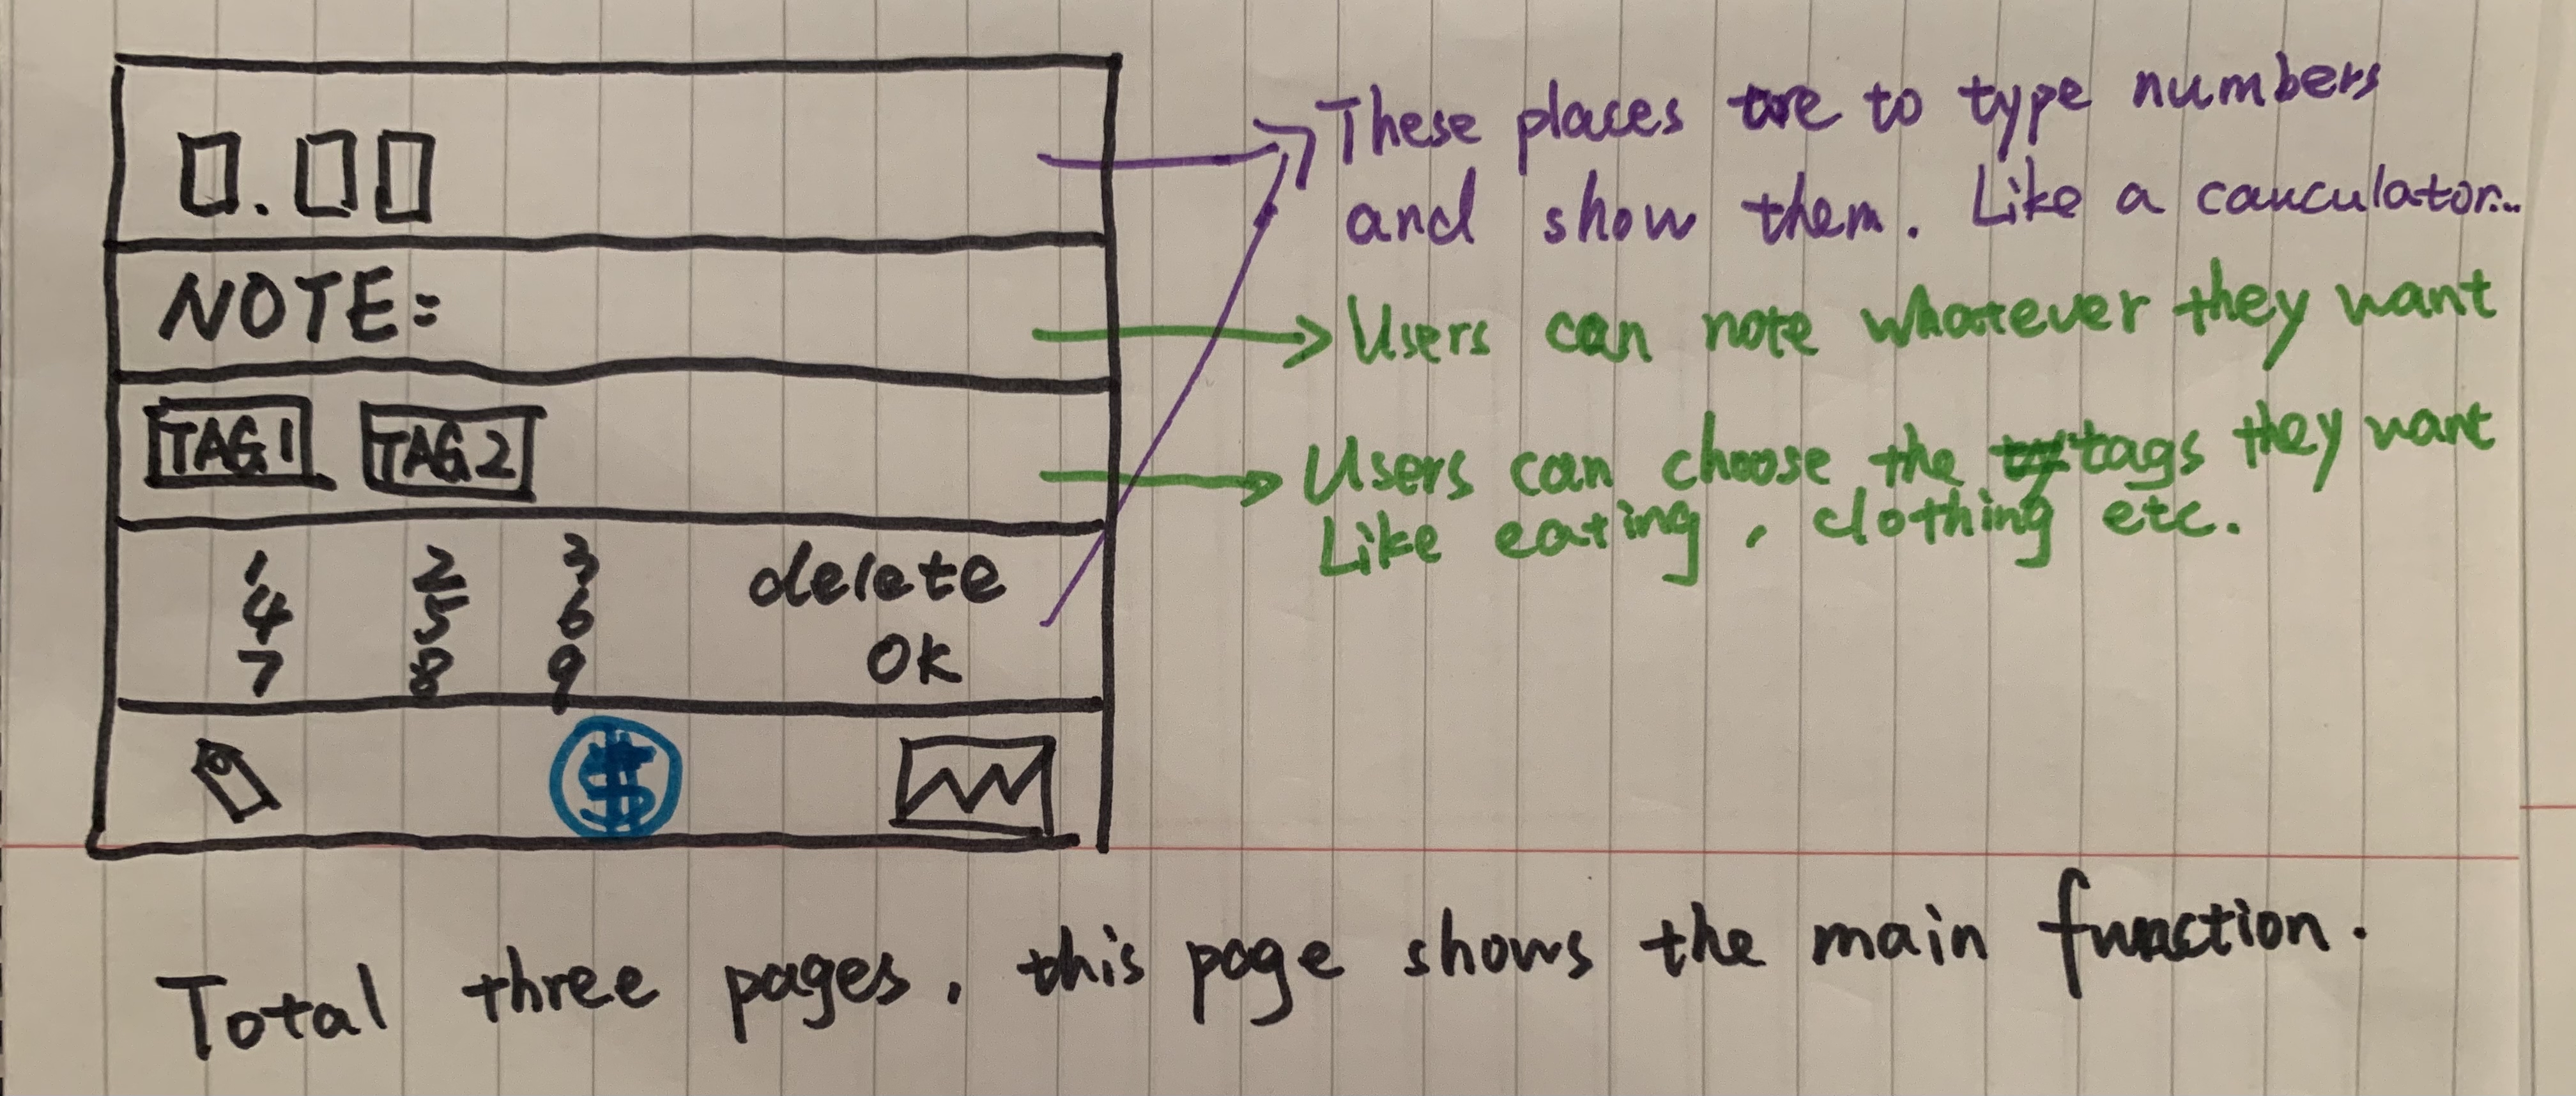 0.00
NOTE:
TAG1 TAG2
1 2 3 delete
4 5 6
7 8 9 OK
$
These places are to type numbers
and show them. Like a cauculator...
Users can note whatever they want
Users can choose the tags they want
Like eating, clothing etc.
Total three pages, this page shows the main function.